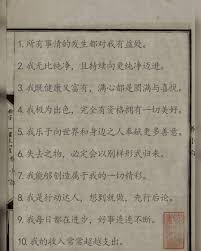 1. 所有事情的发生都对我有益处。
2. 我无比纯净，且持续向更纯净迈进。
3. 我既健康又富有，满心都是圆满与喜悦。
4. 我极为出色，完全有资格拥有一切美好。
5. 我乐于向世界和身边之人奉献更多善意。
6. 失去之物，必定会以别样形式归来。
7. 我能够创造属于我的一切精彩。
8. 我是行动达人，想到就做，先行后论。
9. 我每日都在进步，好事连连不断。
10. 我的收入常常超越支出。